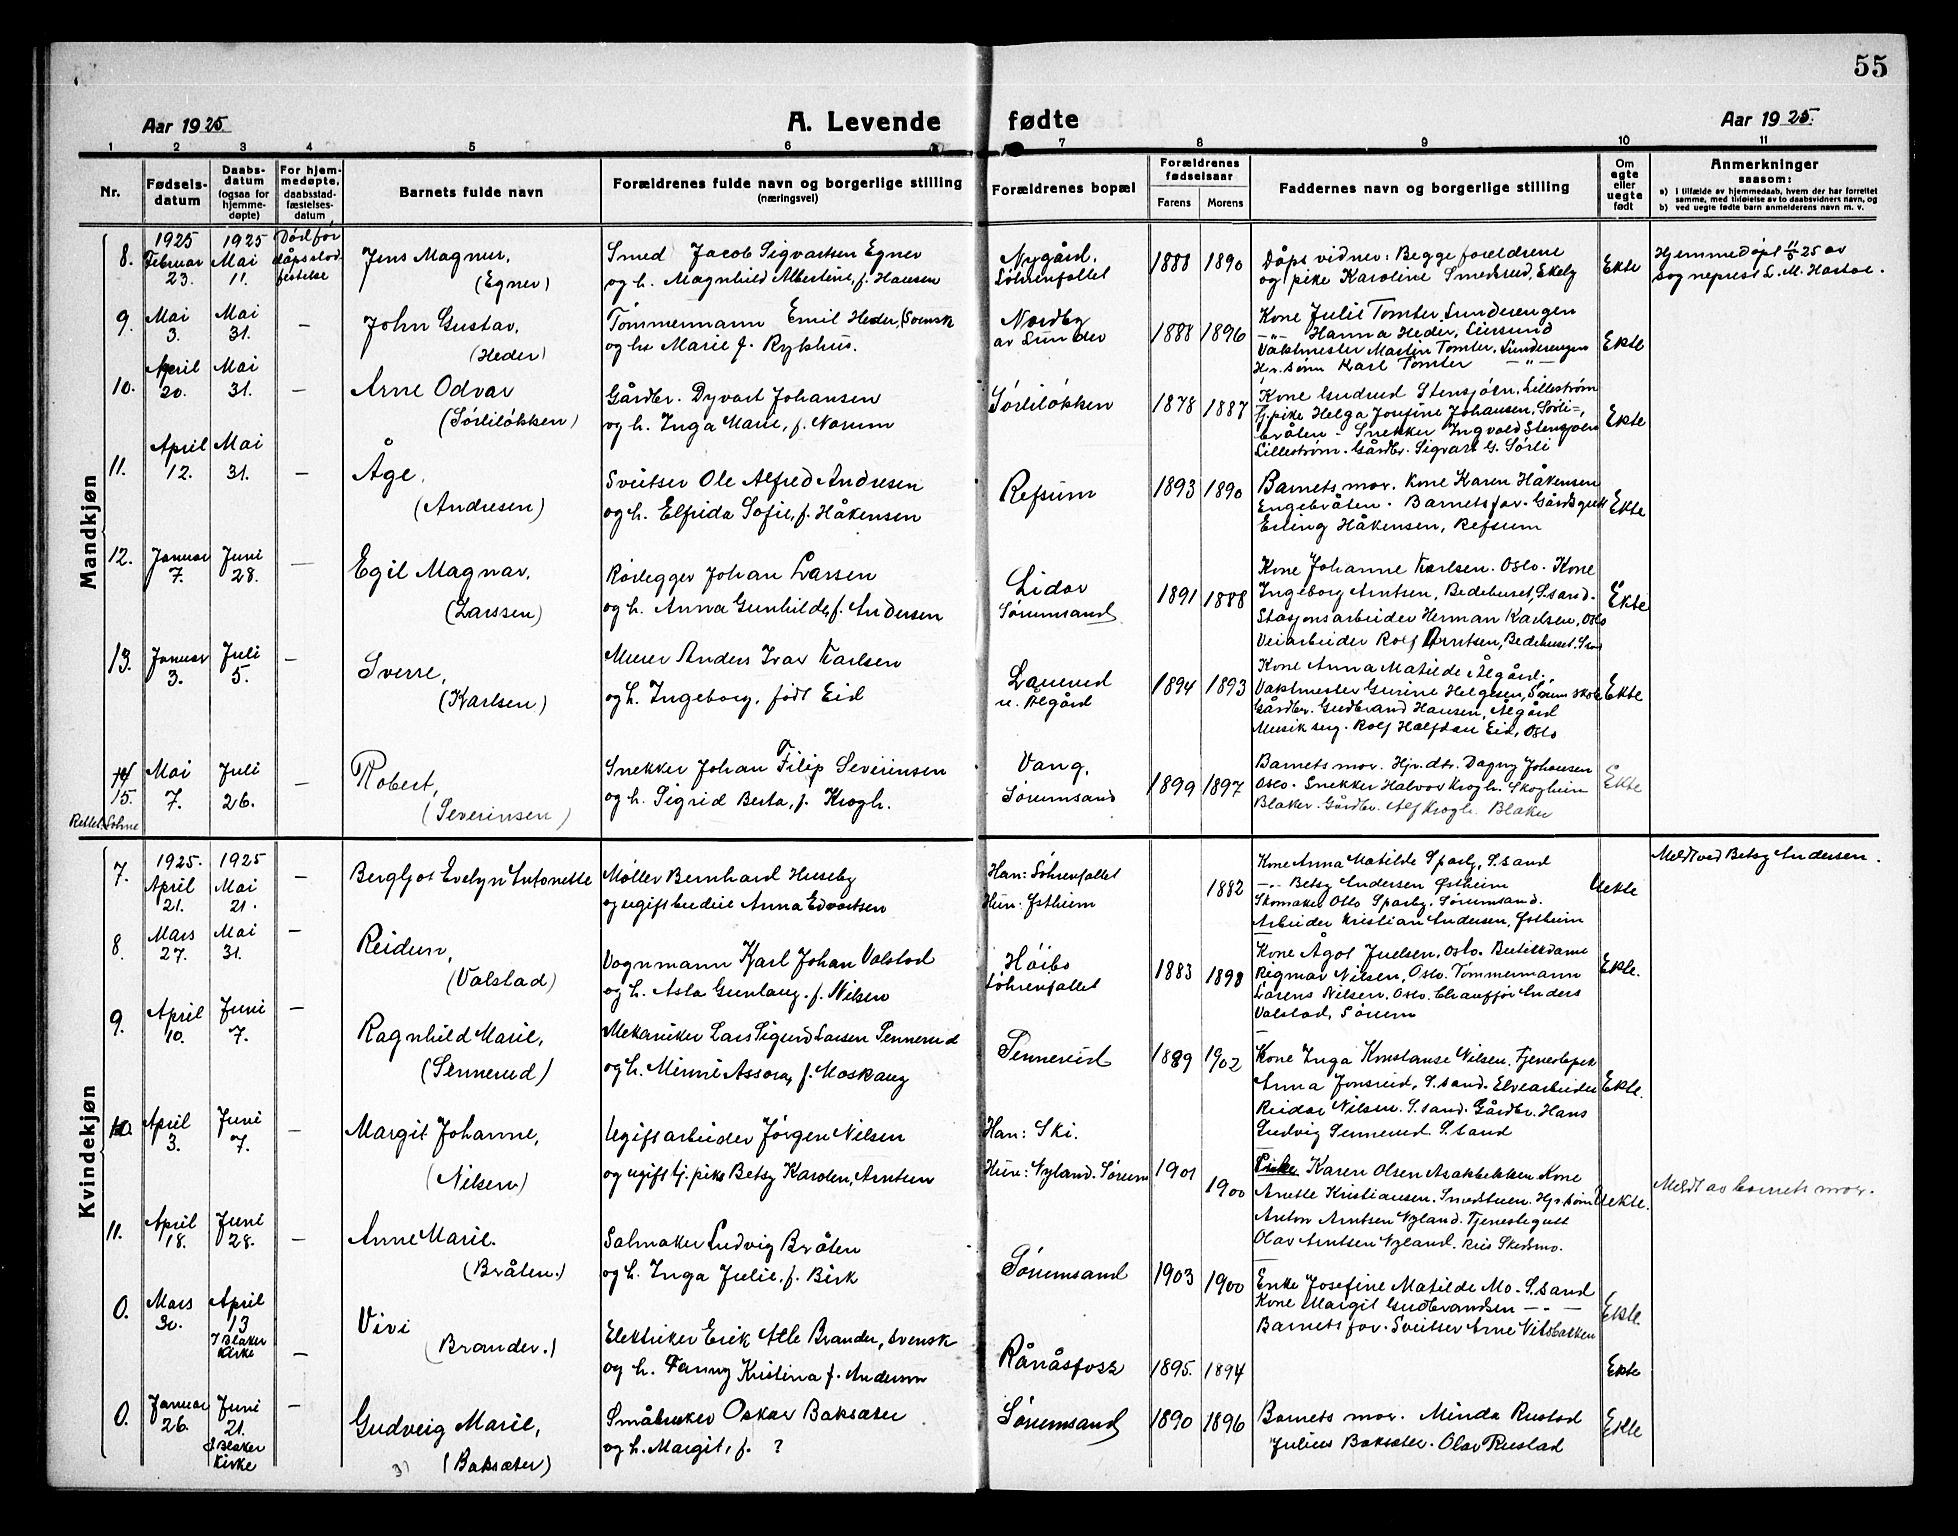 55
Aar 1925
A. Levende
fødte
Aar 1925.
1 2 3 4 5 6 7 8 9 10 11
Nr.
Fødsels-
datum
Daabs-
datum
(ogsaa for
hjemme-
døpte)
For hjem-
medøpte,
daabsstad-
fæstelses-
datum
Barnets fulde navn
Forældrenes fulde navn og borgerlige stilling
(næringsvei)
Forældrenes bopæl
Forældrenes
fødselsaar
Farens
Morens
Faddernes navn og borgerlige stilling
Om
ægte
eller
uegte
født
Anmerkninger
saasom:
a) i tilfælde av hjemmedaab, hvem der har forrettet
samme, med tilføielse av to daabsvidners navn, og
b) ved uegte fødte barn anmelderens navn m. v.
Mandkjøn
8.
1925
Februar
23.
1925
Mai
11.
Død før
dåpsstad-
festelse
Jens Magnus,
(Egner)
Smed Jacob Sigvartsen Egner
og h. Magnhild Albertine, f. Hansen
Nygård,
Sørenfallet
1888 1890
Dåpsvidner: Begge foreldrene
og pike Karoline Smedsrud, Ekely
Ekte
Hjemmedøpt 11/5 25 av
sogneprest L. M. Hastoe.
9.
Mai
3.
Mai
31.
—
John Gustav,
(Heder)
Tømmermann Emil Heder, (Svensk
og h. Marie f. Rykhus.
Nordby
av Lunder
1888 1896
Kone Julie Tomter, Lunderengen
—"— Hanna Heder, Liersund
Vaktmester Martin Tomter, Lunderengen
Hr. sønn Karl Tomter —"—
Ekte
10.
April
20.
Mai
31.
—
Arne Odvar
(Sørliløkken)
Gårdbr. Dyvart Johansen
og h. Inga Marie, f. Norum
Sørliløkken
1878 1887
Kone Gudrud Stensjøen, Lillestrøm
tj. pike Helga Josefine Johansen, Sørli-
bråten - Snekker Ingvald Stensjøen
Lillestrøm. Gårdbr. Sigvart G. Sørli
Ekte
11.
April
12.
Mai
31.
—
Åge,
(Andresen)
Sveitser Ole Alfred Andresen
og h. Elfrida Sofie, f. Håkensen
Refsum
1893 1890
Barnets mor. Kone Karen Håkensen
Engebråten. Barnets far. Gårdsgutt
Erling Håkensen, Refsum
Ekte
12.
Januar
7.
Juni
28.
—
Egil Magnar,
(Larssen)
Rørlegger Johan Larsen
og h. Anna Gunhilde, f. Andersen
Lidar
Sørumsand
1891 1888
Kone Johanne Karlsen. Oslo. Kone
Ingeborg Arntsen, Bedehuset, S.sand.
Stasjonsarbeider Herman Karlsen, Oslo
Veiarbeider Rolf Arntsen, Bedehuset.
Ekte
13.
Januar
3.
Juli
5.
—
Sverre,
(Karlsen)
Murer Anders Ivar Karlsen
og h. Ingeborg, født Eid
Lauerud
u. Ålgård
1894 1893
Kone Anna Matilde Ålgård,
Vaktmester Gurine Helgesen, Sørum skole
Gårdbr. Gudbrand Hansen, Ålgård
Musik serg. Rolf Halfdan Eid, Oslo
Ekte
14
15.
Mai
7.
Juli
26.
—
Robert,
(Severinsen)
Snekker Johan Filip Severinsen
og h. Sigrid Berta, f. Krogh.
Vang,
Sørumsand
1899 1897
Barnets mor. Hjv. dtr. Dagny Johansen
Oslo. Snekker Halvor Krogh. Skogheim
Blaker. Gårdbr. Alf Krogh. Blaker
Ekte
Kvindekjøn
7.
1925.
April
21.
1925
Mai
21.
—
Bergljot Evelyn Antonette
Møller Bernhard Huseby
og ugift budeie Anna Edvartsen
Han: Sørenfallet
Hun: Østheim
1882
Kone Anna Matilde Sparby, S.sand
—"— Betsy Andersen Østheim
Skomaker Otto Sparby, Sørumsand.
Arbeider Kristian Andersen, Østheim
Uekte
Meldt ved Betsy Andersen.
8.
Mars
27.
Mai
31.
—
Reidun,
(Valstad)
Vognmann Karl Johan Valstad
og h. Asta Gunlaug, f. Nilsen
Høibo
Sørenfallet
1883 1898
Kone Ågot Juelsen, Oslo. Butikkdame
Rigmar Nilsen, Oslo. Tømmermann
Lorens Nilsen, Oslo. Chauffør Anders
Valstad, Sørum
Ekte.
9.
April
10.
Juni
7.
—
Ragnhild Marie,
(Sennerud)
Mekaniker Lars Sigurd Larsen Sennerud
og h. Minni Assora, f. Moskaug
Sennerud
1889 1902
Kone Inga Konstanse Nilsen. Tjenestepike
Anna Jonsrud, S.sand. Elvearbeider
Reidar Nilsen. S.sand. Gårdbr. Hans
Ludvig Sennerud S.sand
Ekte.
10.
April
3.
Juni
7.
—
Margit Johanne,
(Nilsen)
Ugift arbeider Jørgen Nilsen
og ugift tj. pike Betsy Karoline Arntsen
Han: Ski.
Hun: Nyland. Sørum
1901
1900
Pike Karen Olsen Asakbekken Kone
Anette Kristiansen. Smedstuen. Hjv. sønn
Anton Arntsen Nyland. Tjenestegutt
Olav Arntsen Nyland. Riis Skedsmo.
Uekte.
Meldt av barnets mor.
11.
April
18.
Juni
28.
—
Anne Marie.
(Bråten.)
Salmaker Ludvig Bråten
og h. Inga Julie, f. Birk
Sørumsand
1903 1900
Enke Josefine Matilde Mo. S.sand
Kone Margit Gudbrandsen —"—
Barnets far. Sveitser Arne Vitsbakken
Ekte
0.
Mars
30.
April
13
I Blaker
Kirke
—
Vivi
(Brander.)
Elektriker Erik Atle Brander, Svensk
og h. Fanny Kristina f. Anderson
Rånåsfoss
1895. 1894
Ekte
0.
Januar
26.
Juni
21.
I Blaker
Kirke
—
Gudveig Marie,
(Baksæter)
Småbruker Oskar Baksæter
og h. Margit, f. ?
Sørumsand
1890 1896
Barnets mor. Minda Rustad
Julius Baksæter. Olav Rustad
Ekte